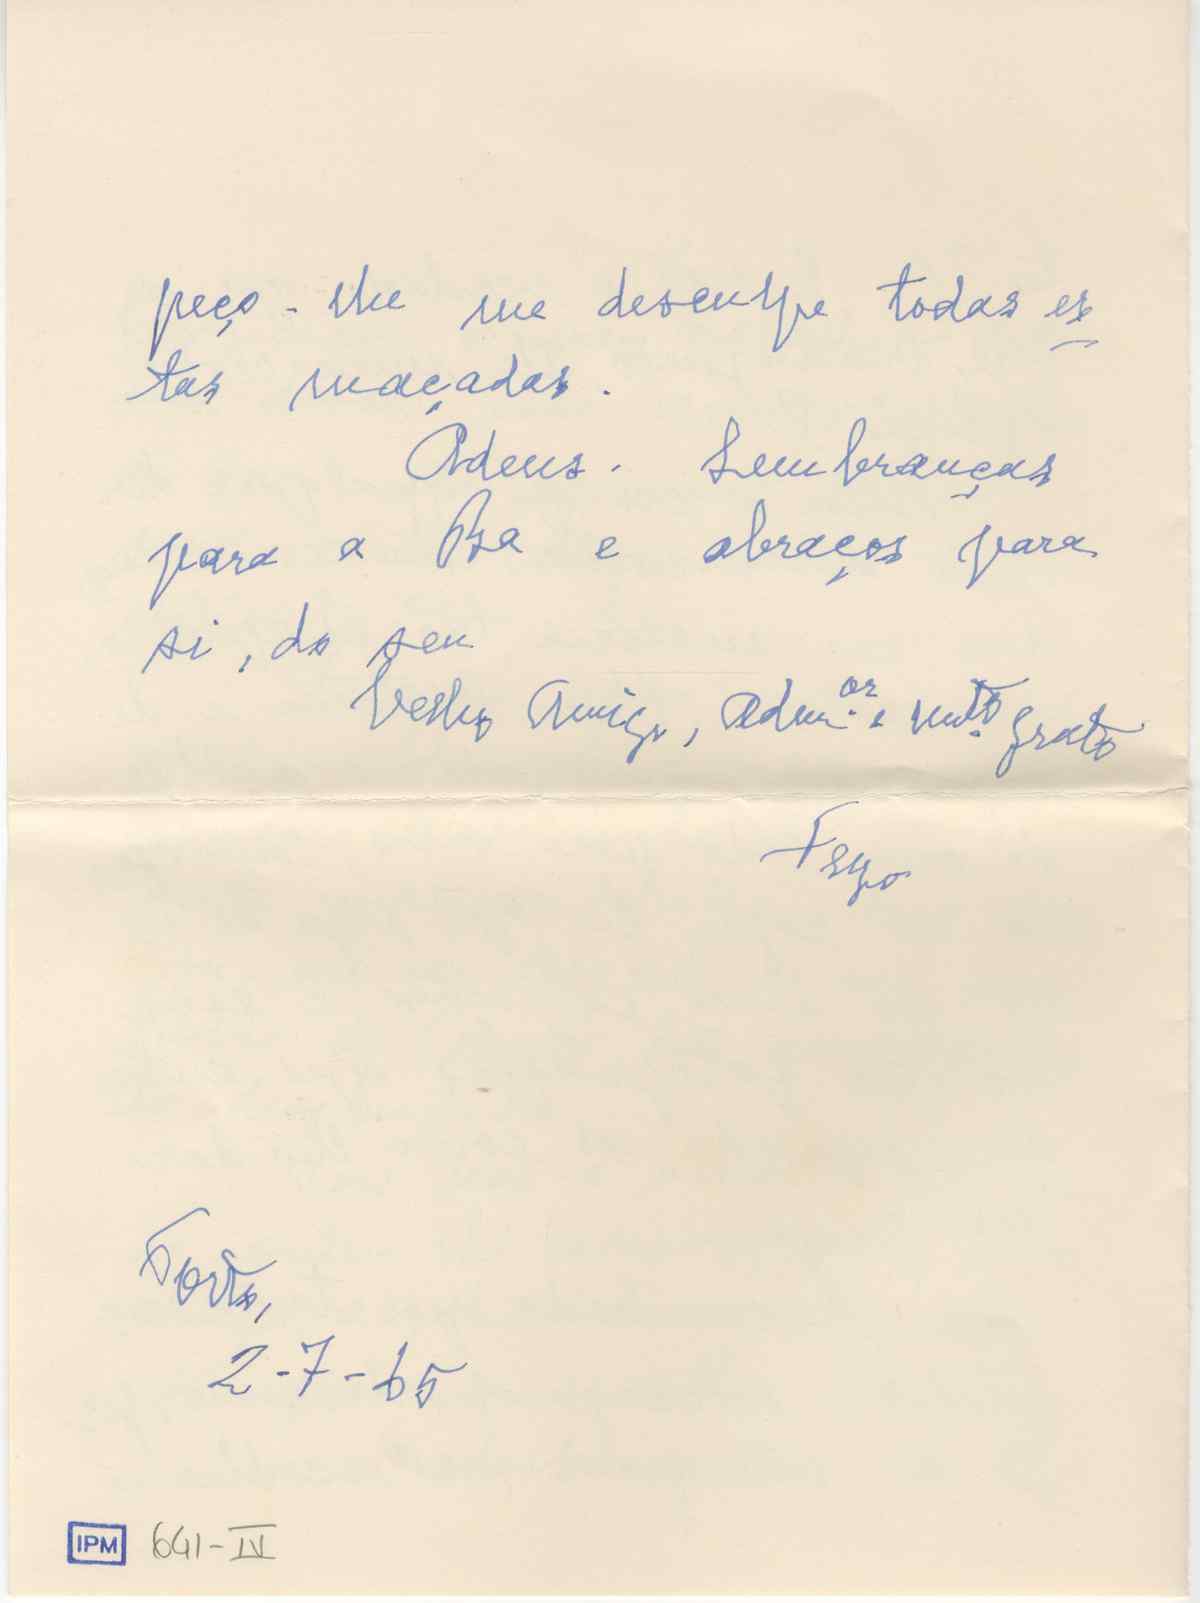 peço-lhe me desculpe todas es
tas maçadas.
Adeus. Lembranças
para a Ba e abraços para
si, do seu
Velho Amigo, Adm.or e mt.to grato
Porto,
2-7-65
IPM 641-IV